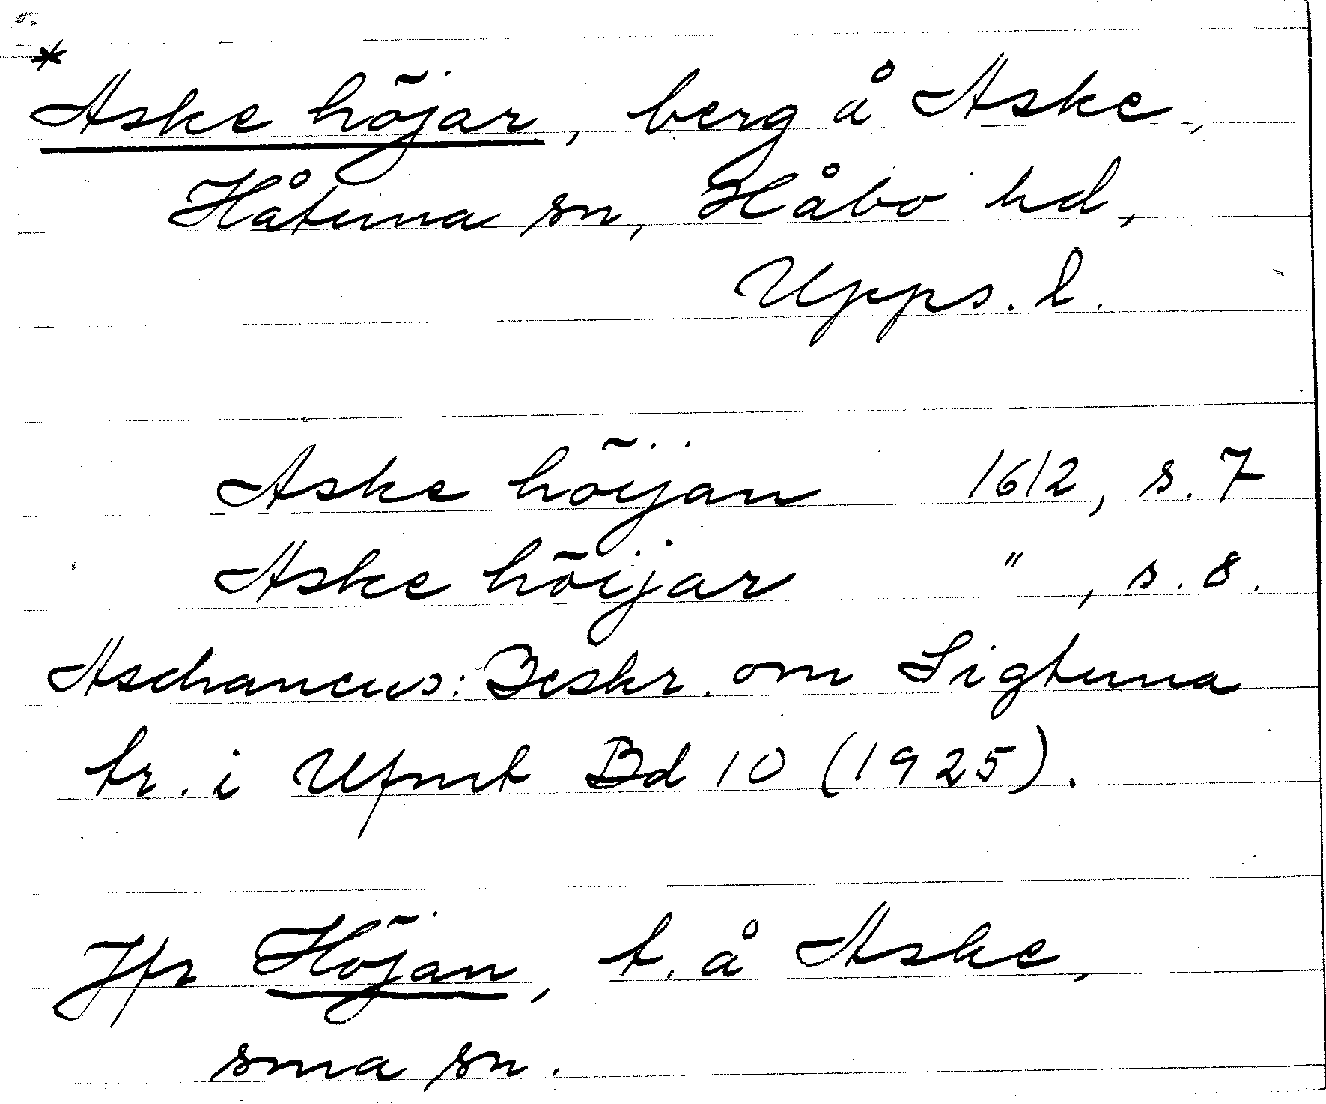 *
Aske höjar, berg å Aske,
Håtuna sn, Håbo hd,
Upps. l.
Aske höijan 1612, s. 7
Aske höijar " , s. 8.
Aschaneus: Beskr. om Sigtuna
tr. i Ufmt Bd 10 (1925).
Jfr Höjan, t. å Aske,
sma sn.